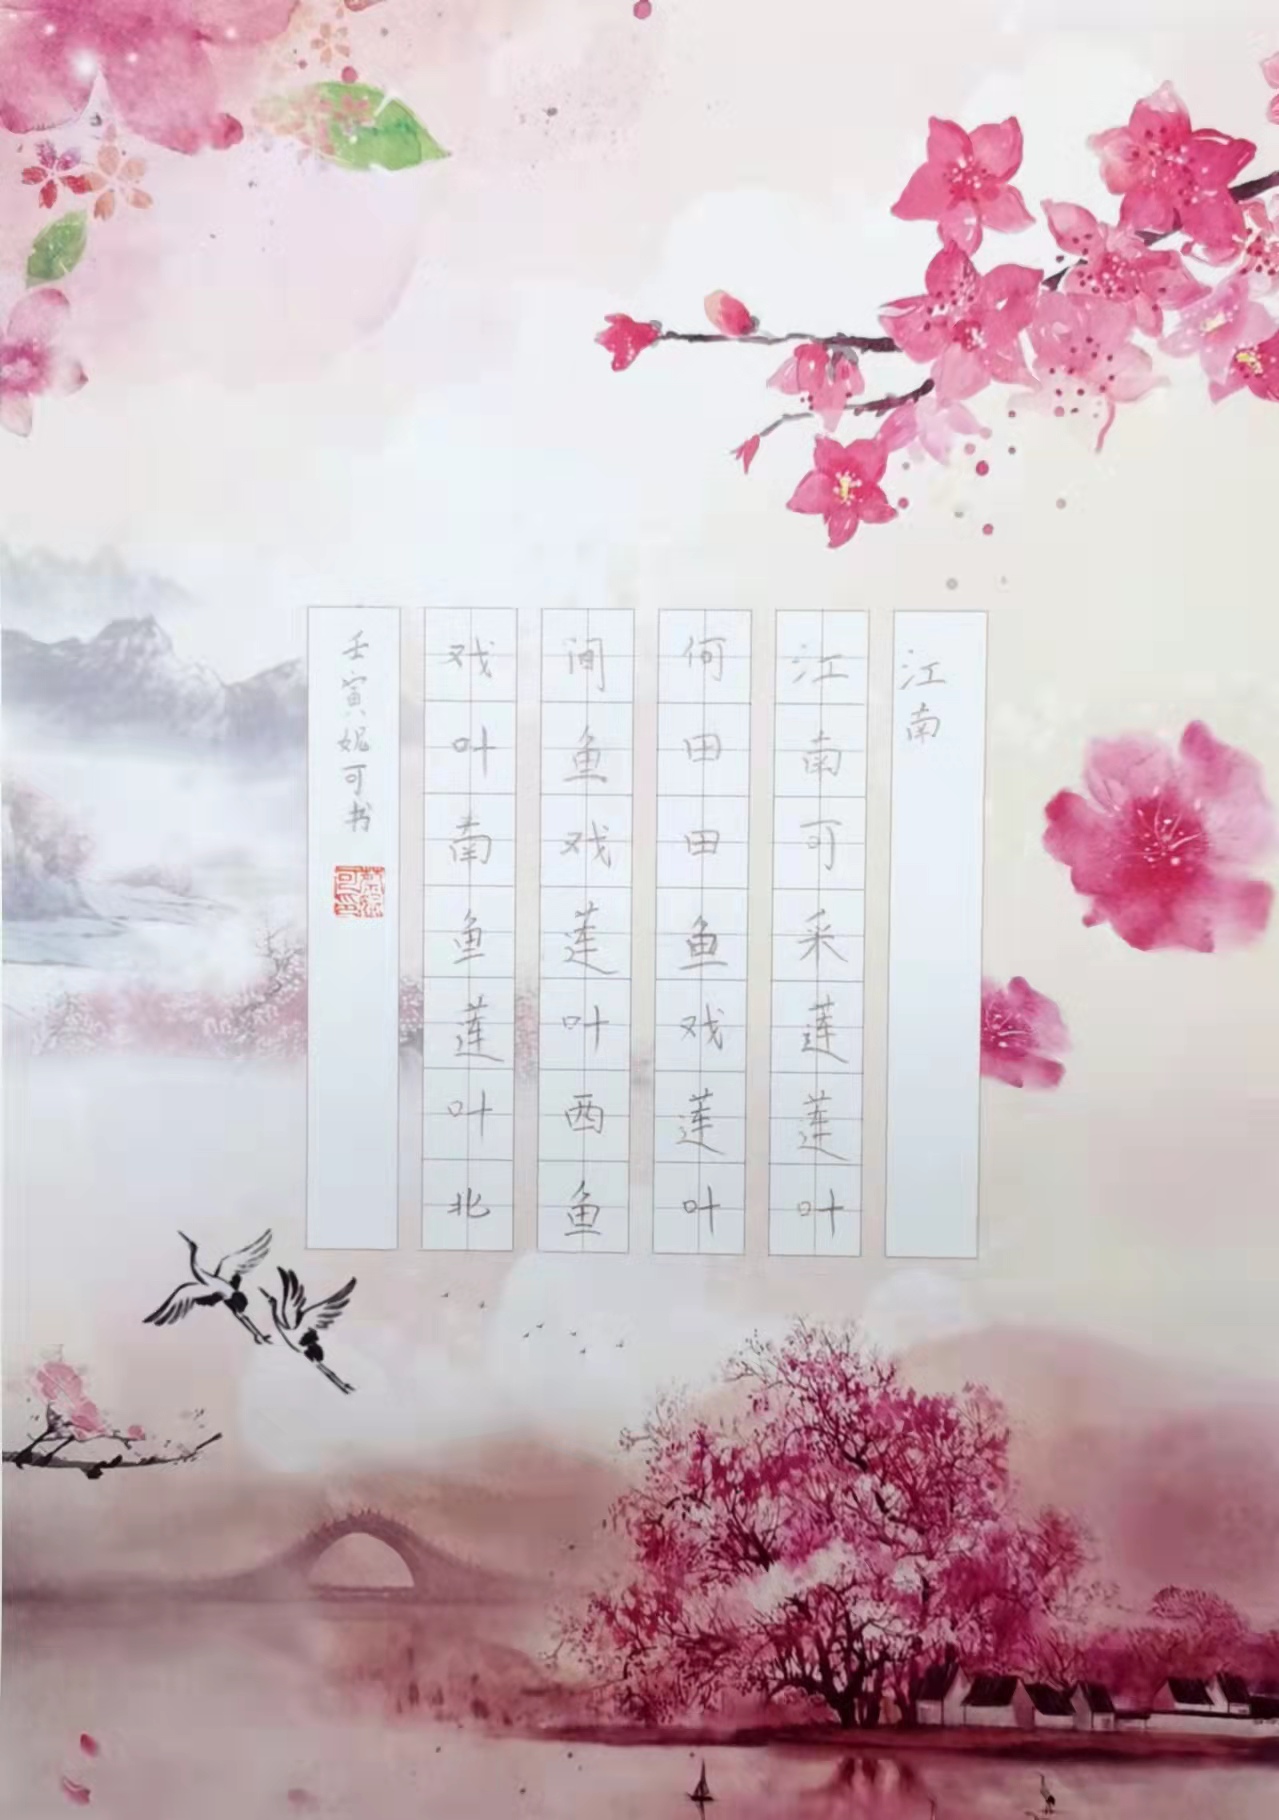 江南
江南可采莲莲叶
何田田鱼戏莲叶
间鱼戏莲叶西鱼
戏叶南鱼莲叶北
壬寅妮可书